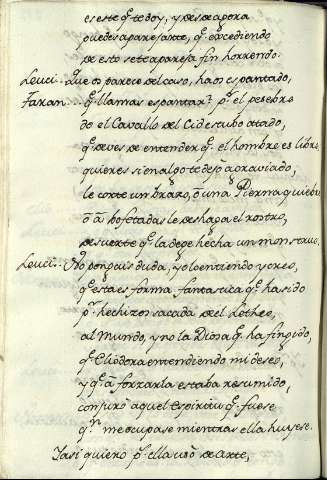 es este q.e te doy, y desde agora
puedes aparejarte, q.e excediendo
de esto se te apareja fin horrendo.
Leuci.. Que os parece del caso, haos espantado,
Faran... q.e llamas espantar? p.r el pesebre
do el Cavallo del Cid estubo atado,
q.e deves de entender q.e el hombre es libre,
quieres si en algo te dejò agraviado,
le corte un brazo, ò una Pierna quiebre
ò à bofetadas le deshaga el rostro,
de suerte q.e la deje hecha un monstruo.
Leuci.. No pongais duda, yo lo entiendo y creo,
q.e esta es forma fantastica q.e ha sido
p.r hechizos sacada del Letheo,
al Mundo, y no la Diosa q.e ha fingido,
q.e Cliodora entendiendo mi deseo,
y q.e à forzarla estaba resumido,
conjurò aquel Espiritu q.e fuese
q.n me ocupase mientras ella huyese.
Y asi quiero p.s ella usò de arte,